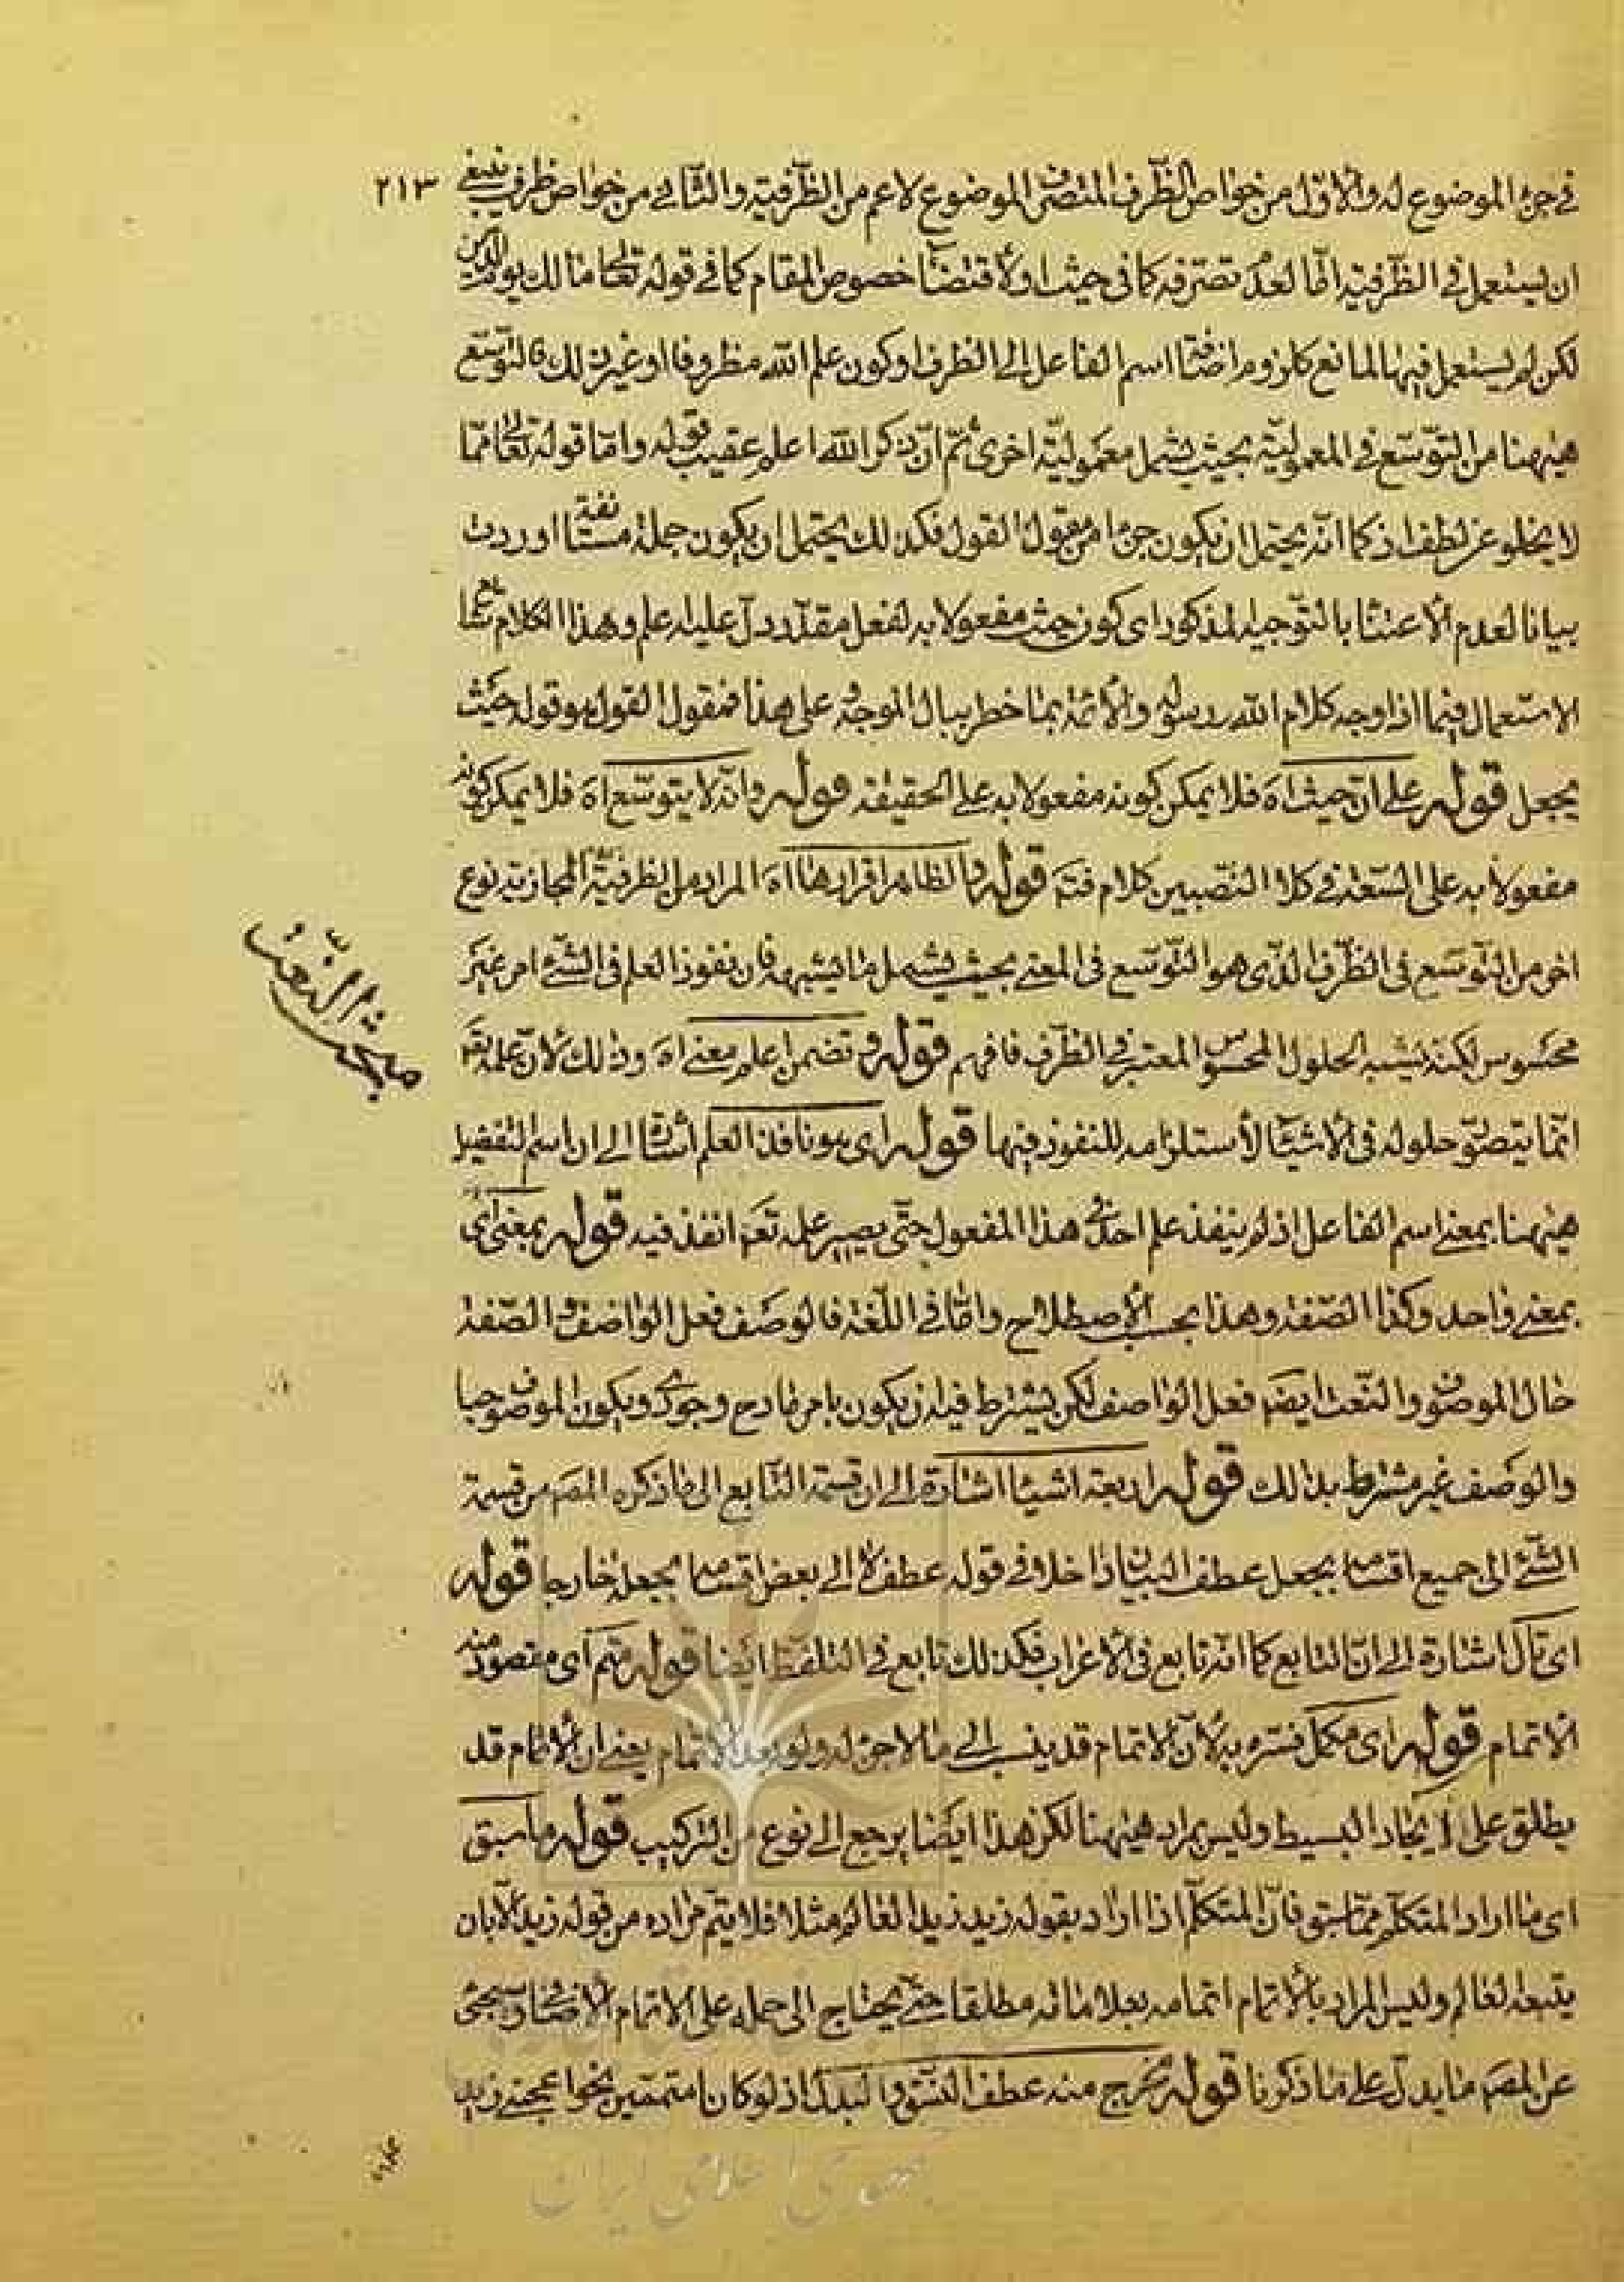 في جزء الموضوع له والاول من خواص الظرف المتصرف الموضوع لاعم من الظرفية والثاني من خواص ظرف ينبغي ٢١٣
ان يستعمل في الظرفية امّا لعدم تصرفه كما في حيث او لاقتضاء خصوص المقام كما في قوله تعالى مالك يوم الدين
لكن لم يستعمل فيها لمانع كلزوم اضافة اسم الفاعل الى الظرف او كون علم الله مظروفا او غير ذلك فالتوسّع
هيهنا من التوسّع في المعموليّة بحيث يشمل معموليّة اخرى ثمّ انّ ذكر الله اعلم عقيب قوله وامّا قوله تعالى ممّا
لا يخلو عن لطف اذ كما انّه يحتمل ان يكون جزءا من مقول القول فكذلك يحتمل ان يكون جملة مستأنفة اوردت
بيانا لعدم الاعتناء بالتوجيه المذكور اى كون حيث مفعولا به لفعل مقدّر دلّ عليه اعلم وهذا الكلام شايع
الاستعمال فيما اذا وجه كلام الله ورسوله والائمّة بما خطر ببال الموجّه على هذا فمقول القول هو قوله حيث
يجعل قوله على ان حيث اه فلا يمكن كونه مفعولا به على الحقيقة قوله وانّه لا يتوسّع اه فلا يمكن كونه
مفعولا به على السّعة في كلا النصبين كلام فتد قوله والظاهر اقرارها اه المراد من الظرفيّة المجازية نوع
اخر من التوسّع في الظّرف الذّى هو التّوسّع فى المعنى بحيث يشمل ما يشبهه فان نفوذ العلم فى الشّئ امر غير
محسوس لكنّه يشبه الحلول المحسوس المعتبر في الظّرف فافهم قوله وتضمن اعلم معنى اه وذلك لانّ علمه تعَ
انّما يتصوّر حلوله فى الاشياء لاستلزامه للنفوذ فيها قوله اى هو نافذ العلم اشارة الى ان اسم التفضيل
هيهنا بمعنى اسم الفاعل اذ لم ينفذ علم احد في هذا المفعول حتّى يصير علمه تعَ انفذ فيه قوله بمعنى اى
بمعنى واحد وكذا الصّفة وهذا بحسب الاصطلاح وامّا في اللّغة فالوصف فعل الواصف والصّفة
حال الموصوف والنّعت ايضَ فعل الواصف لكن يشترط فيه ان يكون بامر مادح وجودى ويكون الموصوف حيا
والوصف غير مشترط بذلك قوله اربعة اشياء اشارة الى ان قسمة التّابع الى ما ذكره المصَ من قسمة
الشّئ الى جميع اقسامه بجعل عطف البيان داخلا في قوله عطف لا الى بعض اقسامه بجعله خارجا قوله
اى تال اشارة الى انّ التابع كما انّه تابع فى الاعراب فكذلك تابع في التلفّظ ايضا قوله متم اى مقصود منه
الاتمام قوله اى مكمل فسّره به لانّ الاتمام قد ينسب الى ما لا جزء له يعنى ان الاتمام قد
يطلق على الايجاد البسيط وليس بمراد هيهنا لكن هذا ايضا يرجع الى نوع من التركيب قوله ما سبق
اى ما اراد المتكلّم ممّا سبق فانّ المتكلّم اذا اراد بقوله زيد زيد العالم مثلا فلا يتمّ مراده من قوله زيد الا بان
يتبعه العالم وليس المراد بالاتمام اتمامه بعلاماته مطلقا حتّى يحتاج الى حمله على الاتمام الاضافى وسيجئ
عن المصَ ما يدلّ على ما ذكرنا قوله مخرج منه عطف النسق والبدل اذ لو كان متممين نحو اعجبنى زيد
مبحث النعت